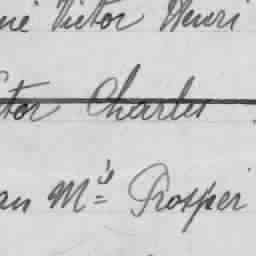 né Victor Henri
ctor Charles
an M's Prosper